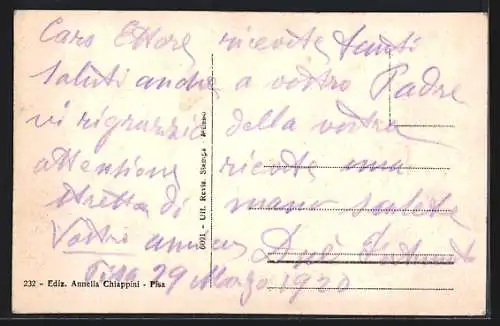 Caro Ettore ricevete tanti
saluti anche a vostro Padre
vi rigrazzio della vostra
attenzione ricevete una
stretta di mano salute
Vostro amico
Pisa 29 Marzo 1920
6091 - Uff. Revis. Stampa
232 - Ediz. Annella Chiappini - Pisa